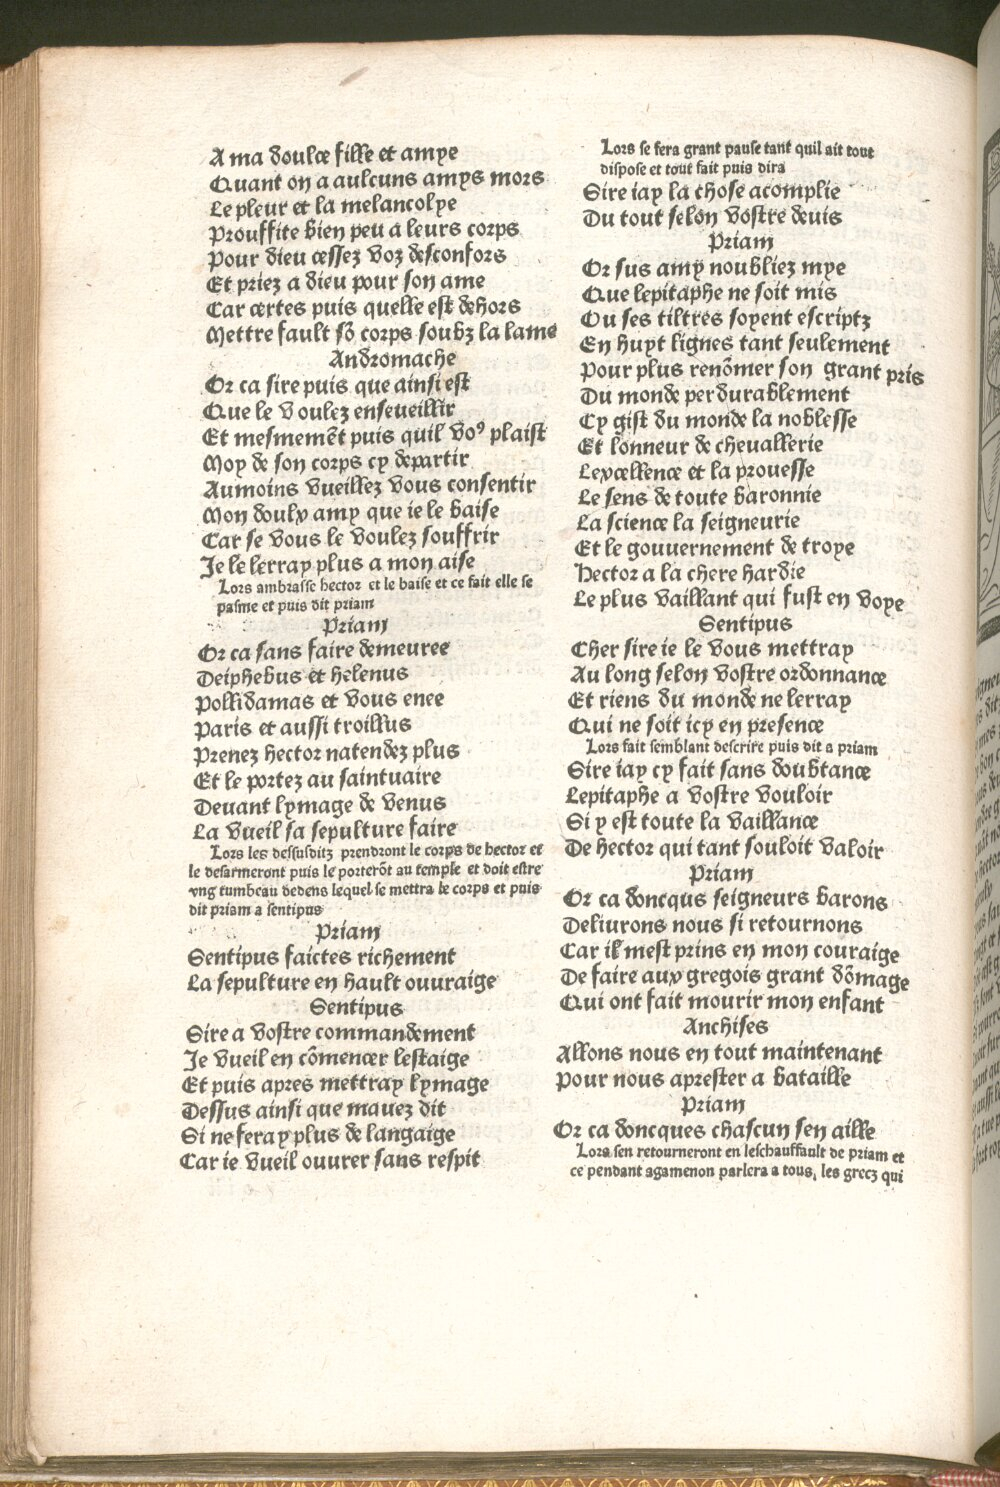 A ma doulce fille et amye
Quant on a aulcuns amys mors
Le pleur et la melancolye
Prouffite bien peu a leurs corps
Pour dieu cessez voz desconfors
Et priez a dieu pour son ame
Car certes puis quelle est dehors
Mettre fault sõ corps soubz la lame
Andromache
Or ca sire puis que ainsi est
Que le voulez enseuelir
Et mesmemẽt puis quil voꝰ plaist
Moy de son corps cy departir
Aumoins vueillez vous consentir
Mon doulx amy que ie le baise
Car se vous le voulez souffrir
Je le lerray plus a mon aise
Lors ambrasse hector et le baise et ce fait elle se
pasme et puis dit priam
Priam
Or ca sans faire demeuree
Deiphebus et helenus
Pollidamas et vous enee
Paris et aussi troillus
Prenez hector natendez plus
Et le portez au saintuaire
Deuant lymage de venus
La vueil sa sepulture faire
Lors les dessusditz prendront le corps de hector et
le desarmeront puis le porterõt au temple et doit estre
vng tumbeau dedens lequel se mettra le corps et puis
dit priam a sentipus
Priam
Sentipus faictes richement
La sepulture en hault ouuraige
Sentipus
Sire a vostre commandement
Je vueil en cõmencer lestaige
Et puis apres mettray lymage
Dessus ainsi que mauez dit
Si ne feray plus de langaige
Car ie vueil ouurer sans respit
Lors se fera grant pause tant quil ait tout
dispose et tout fait puis dira
Sire iay la chose acomplie
Du tout selon vostre deuis
Priam
Or sus amy noubliez mye
Que lepitaphe ne soit mis
Ou ses tiltres soyent escriptz
En huyt lignes tant seulement
Pour plus renõmer son grant pris
Du monde perdurablement
Cy gist du monde la noblesse
Et lonneur de cheuallerie
Lexcellence et la prouesse
Le sens de toute baronnie
La science la seigneurie
Et le gouuernement de troye
Hector a la chere hardie
Le plus vaillant qui fust en voye
Sentipus
Cher sire ie le vous mettray
Au long selon vostre ordonnance
Et riens du monde ne lerray
Qui ne soit icy en presence
Lors fait semblant descrire puis dit a priam
Sire iay cy fait sans doubtance
Lepitaphe a vostre vouloir
Si y est toute la vaillance
De hector qui tant souloit valoir
Priam
Or ca doncqus seigneurs barons
Deliurons nous si retournons
Car il mest prins en mon couraige
De faire aux gregois grant dõmage
Qui ont fait mourir mon enfant
Anchises
Allons nous en tout maintenant
Pour nous aprester a bataille
Priam
Or ca doncques chascun sen aille
Lors sen retourneront en leschauffault de priam et
ce pendant agamenon parlera a tous, les grecz qui